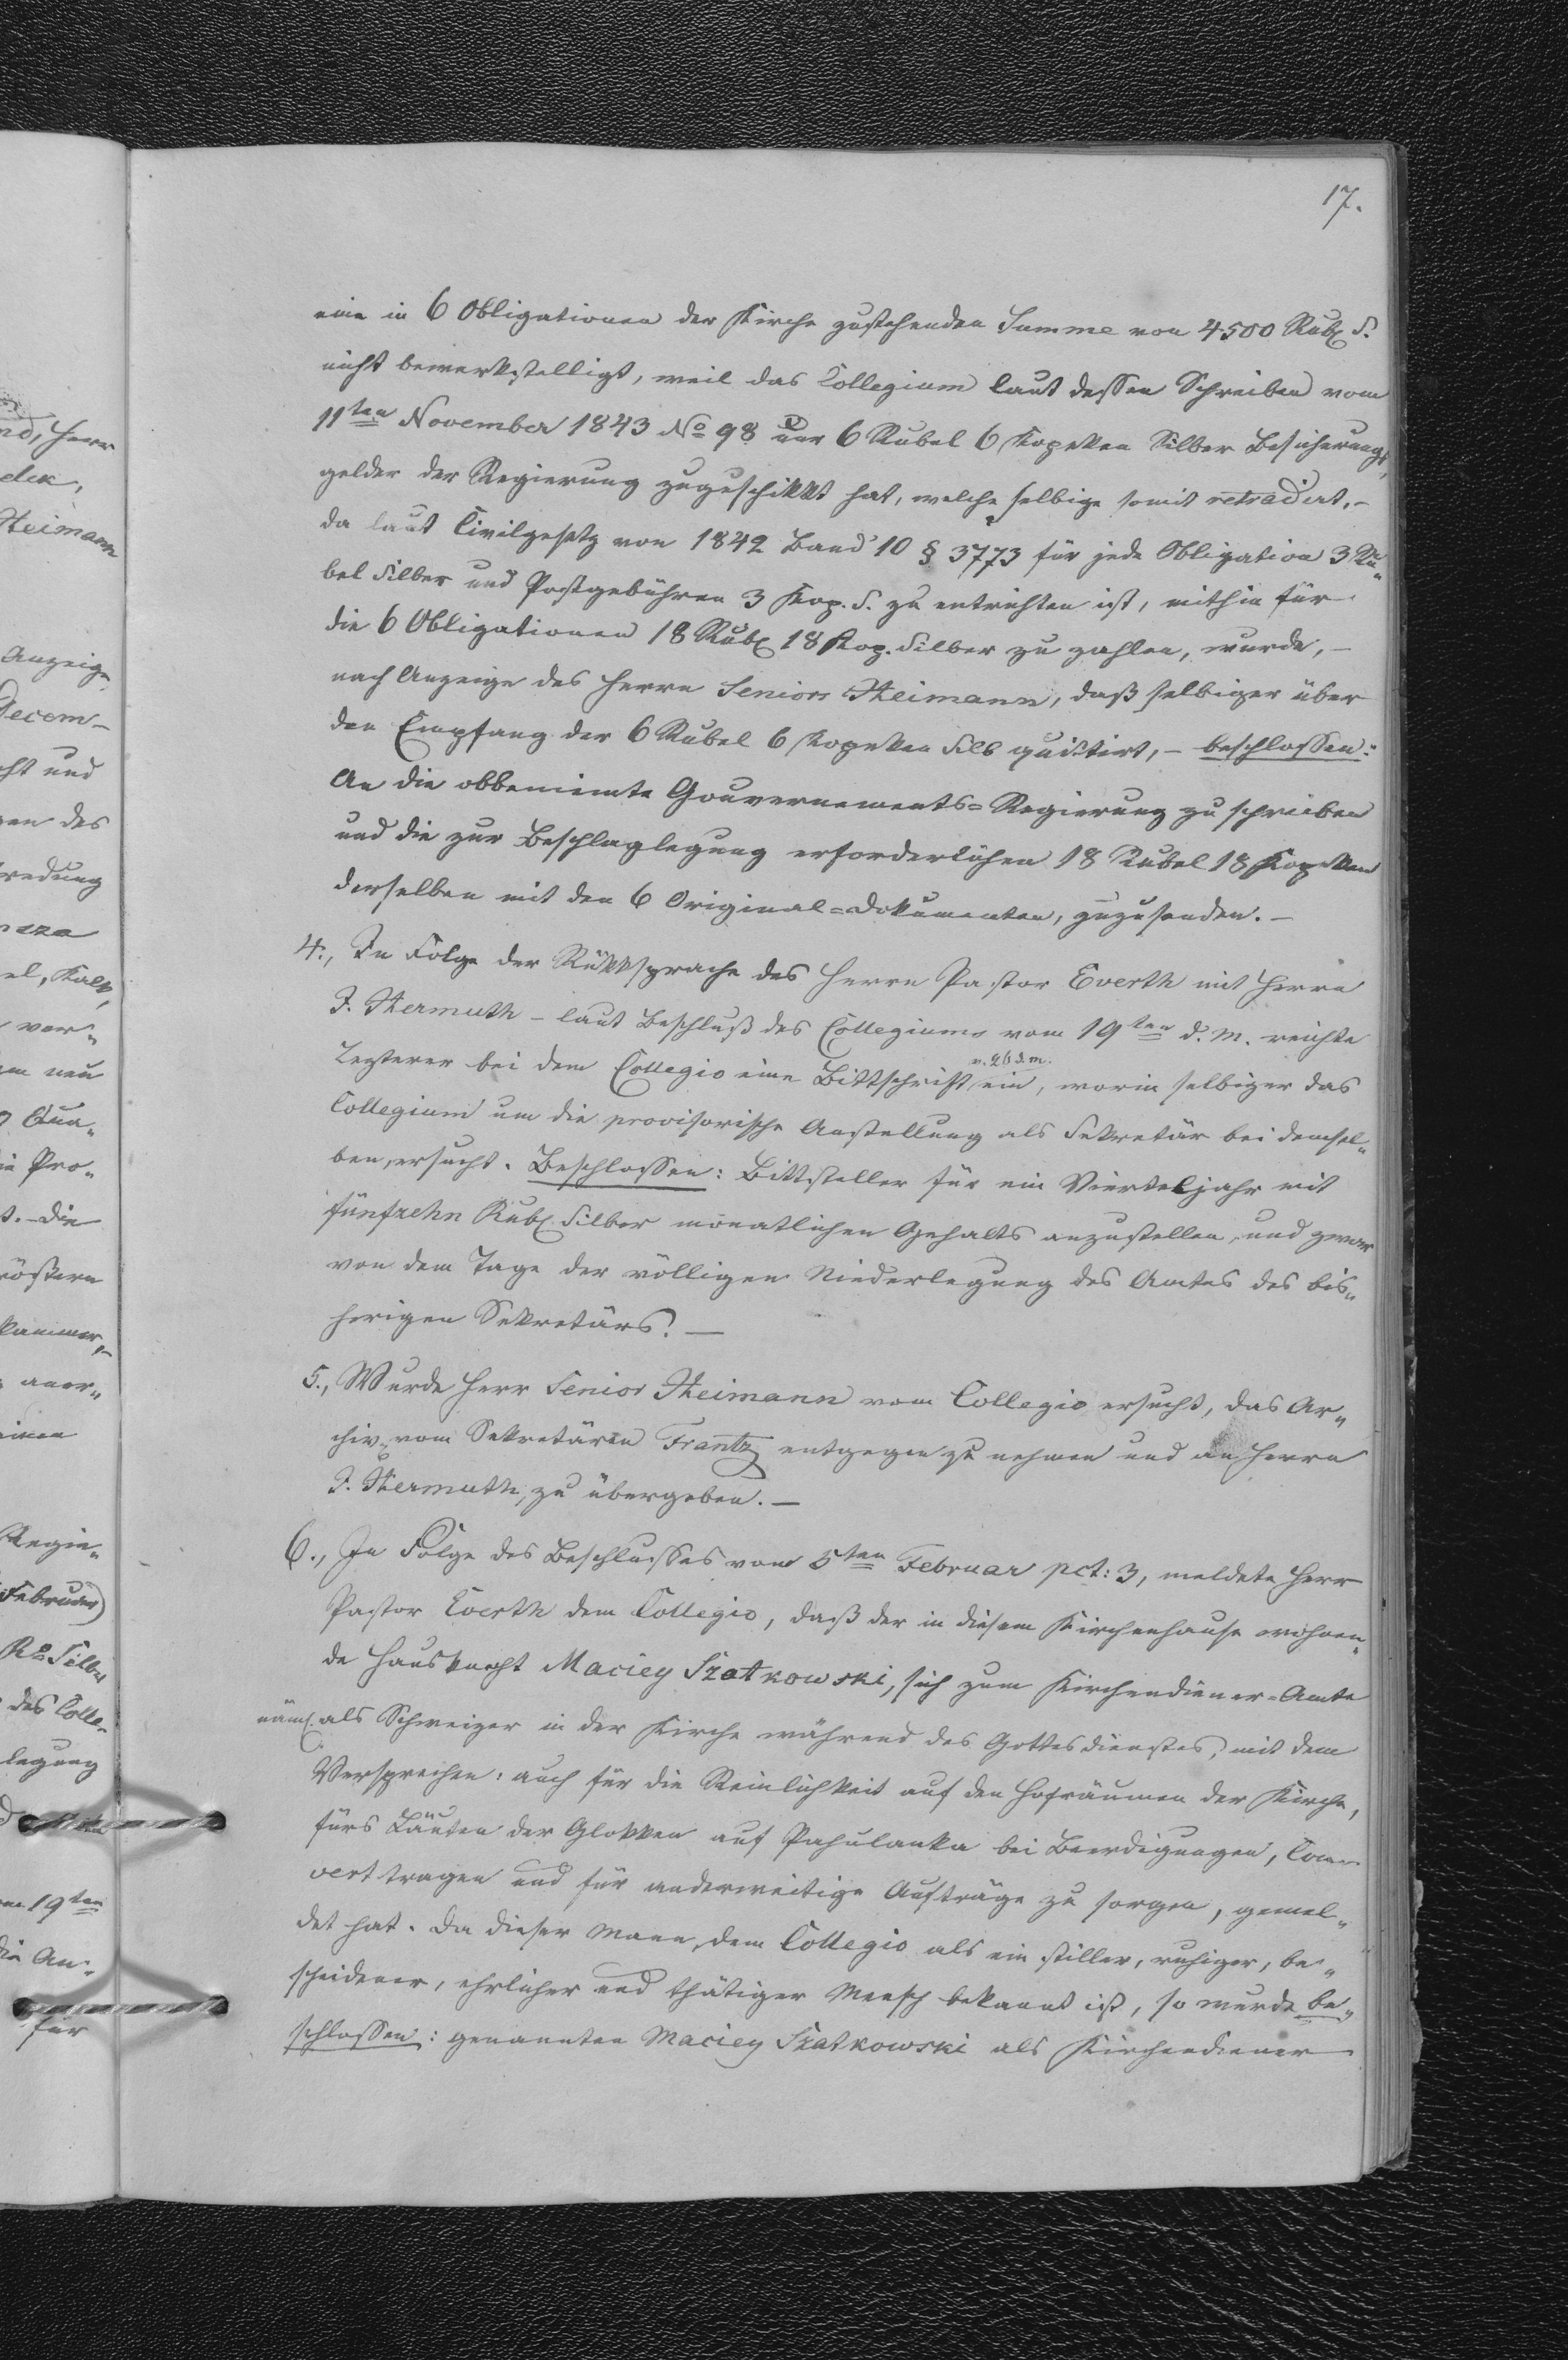 17.
eine in 6 Obligationen der Kirche zustehenden Summe von 4500 Rub. S.
nicht bewerkstelligt, weil das Collegium laut dessen Schreiben vom
11ten November 1843 No 98 nur 6 Rubel 6 Kopeken Silber Besicherungs„
gelder der Regierung zugeschikkt hat, welche selbige somit retradirt. –
da laut Civilgesetz von 1842 Band 10 § 3773 für jede Obligation 3 Ru„
bel Silber und Postgebühren 3 Kop. S. zu entrichten ist, mithin für
die 6 Obligationen 18 Rub. 18 Kop. Silber zu zahlen, wurde, –
nach Anzeige des Herrn Seniors Heimann, daß selbiger über
den Empfang der 6 Rubel 6 Kopeken Silb quittirt, – beschlossen:
An die obbenimte Gouvernements=Regierung zu schreiben
und die zur Beschlaglegung erforderlichen 18 Rubel 18 Kopeken
derselben mit den 6 Original=Dokumenten, zuzusenden. –
4., In Folge der Rükksprache des Herrn Pastor Everth mit Herrn
F. Hermuth – laut Beschluß des Collegiums vom 19ten d. M. reichte
v. 26 d. m.
Lezterer bei dem Collegio eine Bittschrift ein, worin selbiger das
Collegium um die provisorische Anstellung als Sekretär bei demsel„
ben, ersucht. Beschlossen: Bittsteller für ein Vierteljahr mit
fünfzehn Rub. Silber monatlichen Gehalts anzustellen, und zwar
von dem Tage der völligen Niederlegung des Amtes des bis„
herigen Sekretärs. –
5., Wurde Herr Senior Heimann vom Collegio ersucht, das Ar„
chiv, vom Sekretären Frantz entgegen zu nehmen und an Herrn
F. Hermuth, zu übergeben. –
6., In Folge des Beschlusses vom 5ten Februar pct: 3, meldete Herr
Pastor Everth dem Collegio, daß der in diesem Kirchenhause wohnen„
de Hausknecht Maciey Szatkowski, sich zum Kirchendiener=Amte
näml. als Schweizer in der Kirche während des Gottesdienstes, mit dem
Versprechen: auch für die Reinlichkeit auf den Hofräumen der Kirche,
fürs Läuten der Glokken auf Pohulanka bei Beerdigungen, Cou„
vert tragen und für anderweitige Aufträge zu sorgen, gemel„
det hat. Da dieser Mann, dem Collegio als ein stiller, ruhiger, be„
scheidener, ehrlicher und thätiger Mensch bekannt ist, so wurde be„
schlossen: genannten Maciey Szatkowski als Kirchendiener